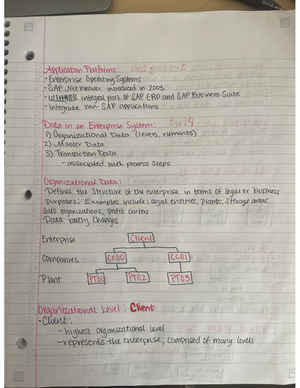 Application Platforms:
• Enterprise Operating Systems
• SAP NetWeaver introduced in 2003
integral part of SAP ERP and SAP Business Suite
• Integrate non-SAP applications
Data in an Enterprise System:
1) Organizational Data (levers, elements)
2) Master Data
3) Transaction Data
- associated with process steps
Organizational Data:
• Defines the structure of the enterprise in terms of legal or business
purposes. Examples include: legal entities, plants, storage areas,
sales organizations, profit centers
• Data rarely changes
Enterprise Client
Companies CC00 CC01
Plant PT01 PT02 PT03
Organizational Level: Client
• Client:
- highest organizational level
- represents the enterprise; comprised of many levels